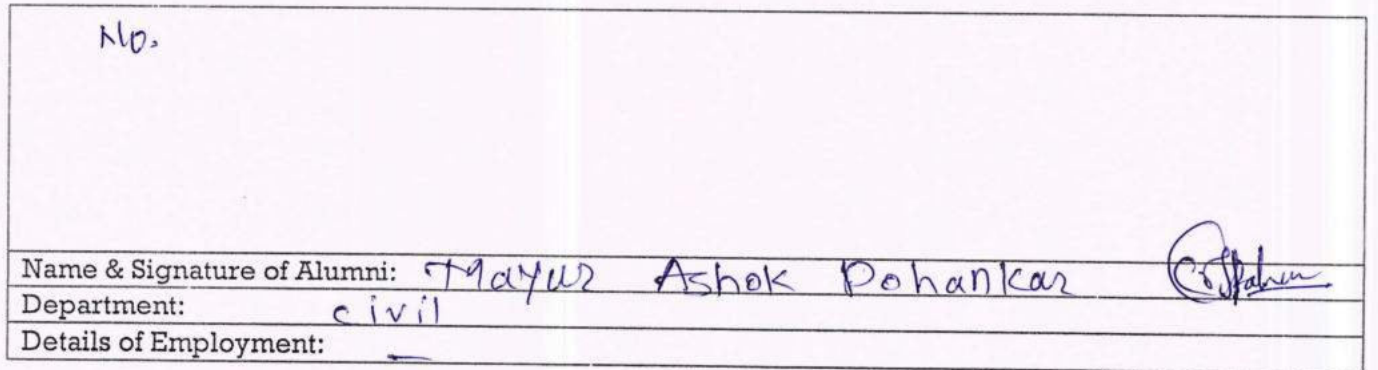 No.
Name & Signature of Alumni: Mayur Ashok Pohankar
Department: civil
Details of Employment: —